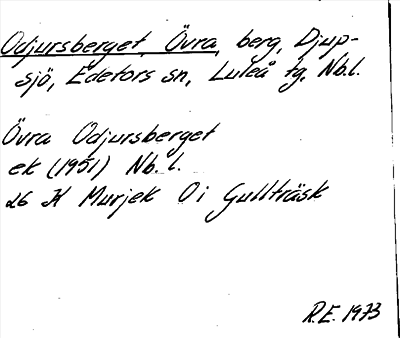 Odjursberget, Övra, berg, Djup-
sjö, Edefors sn, Luleå tg. Nb.l.
Övra Odjursberget
ek (1951) Nb. l.
26 K Murjek O i Gullträsk
R.E. 1973